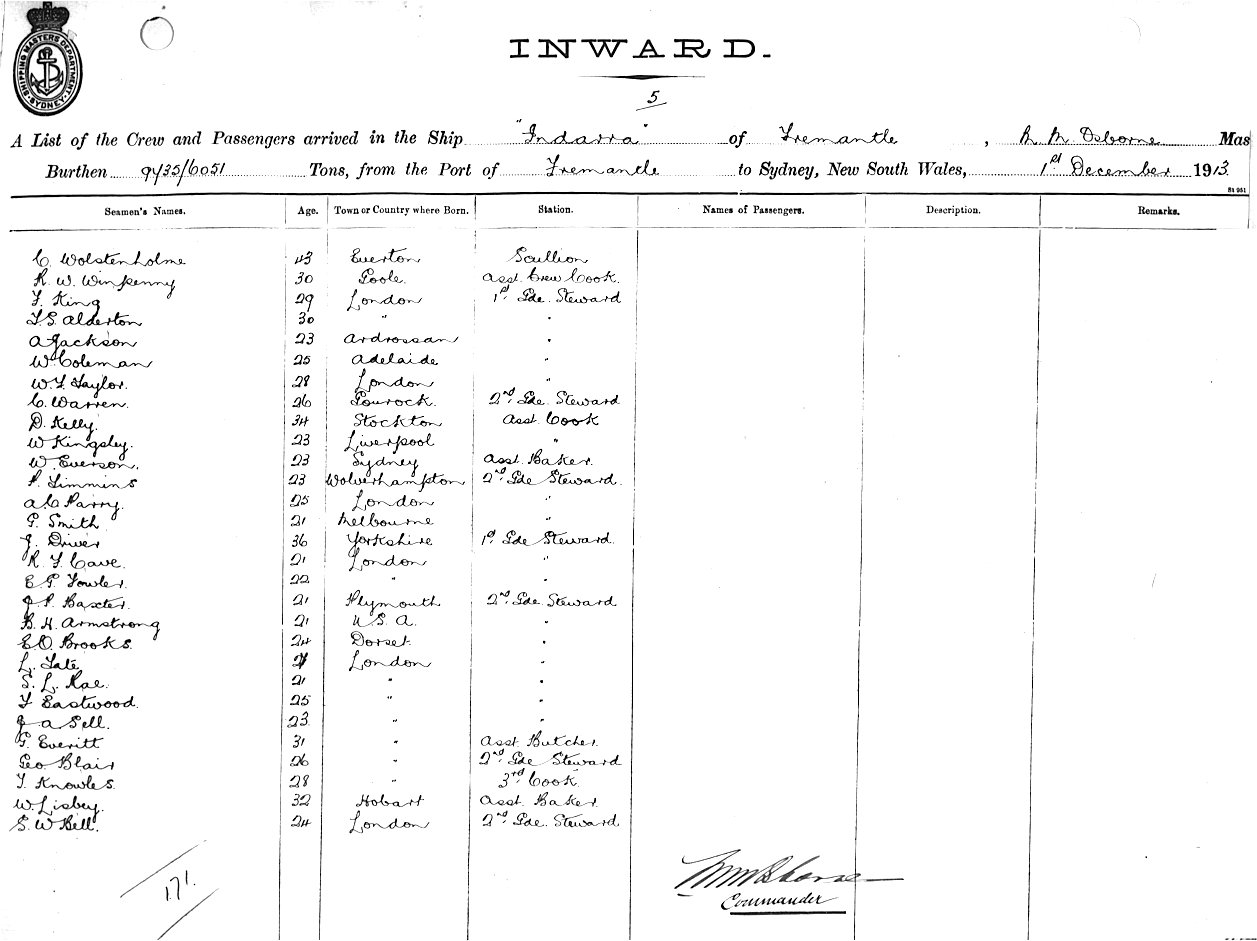 SHIPPING MASTERS DEPARTMENT. SYDNEY.
INWARD.
5
A List of the Crew and Passengers arrived in the Ship "Indarra" of Fremantle, Osborne Mas
Burthen 9735/6051 Tons, from the Port of Fremantle to Sydney, New South Wales, 1st December 1913
Seamen's Names. Age. Town or Country where Born. Station. Names of Passengers. Description. Remarks.
C. Wolstenholme 43 Everton Scullion
R. W. Winpenny 30 Poole. Asst. Crew Cook.
F. King 29 London 1st Gde. Steward
T.S. Alderton 30 " "
A Jackson 23 Ardrossan "
W. Coleman 25 Adelaide "
W. F. Taylor. 28 London "
C. Warren. 26 Gourock. 2nd Gde. Steward
D. Kelly. 34 Stockton Asst. Cook
W Kingsley. 23 Liverpool "
W. Everson. 23 Sydney Asst. Baker.
P. Timmins 23 Wolverhampton 2nd Gde Steward.
A. C Parry. 25 London "
G. Smith 21 Melbourne "
J. Driver 36 Yorkshire 1st Gde Steward.
R. F. Cave. 21 London "
E G. Fowler. 22 " "
J. P. Baxter. 21 Plymouth 2nd Gde Steward
B. H. Armstrong 21 U.S.A. "
E O. Brooks. 24 Dorset. "
L. Tate London "
S. L. Rae. 21 " "
F Eastwood. 25 " "
J A Sell. 23. " "
G. Everitt 31 " Asst. Butcher.
Geo. Blair 26 " 2nd Gde Steward
T. Knowles. 28 " 3rd Cook
W. Lisbey. 32 Hobart Asst. Baker.
S. W Bell. 24 London 2nd Gde. Steward
171.
Commander